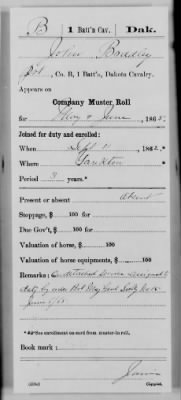 B | 1 Batt'n Cav. | Dak.
John Bradley
Pvt., Co. B, 1 Batt'n, Dakota Cavalry.
Appears on
Company Muster Roll
for May & June, 1865.
Joined for duty and enrolled:
When 11, 1862.
Where Yankton
Period 3 years.*
Present or absent absent
Stoppage, $ 100 for
Due Gov't, $ 100 for
Valuation of horse, $ 100
Valuation of horse equipments, $ 100
Remarks: On detached service
duty by order
June 1/65
* See enrollment on card from muster-in roll.
Book mark:
Copyist.